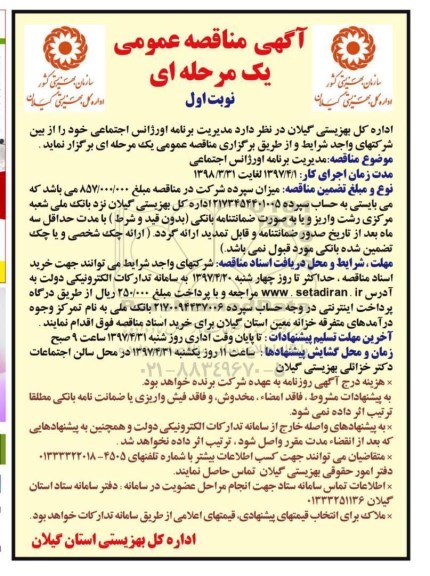 آگهی مناقصه عمومی
یک مرحله ای
نوبت اول
سازمان بهزیستی کشور
اداره کل بهزیستی گیلان
سازمان بهزیستی کشور
اداره کل بهزیستی گیلان
اداره کل بهزیستی گیلان در نظر دارد مدیریت برنامه اورژانس اجتماعی خود را از بین
شرکتهای واجد شرایط و از طریق برگزاری مناقصه عمومی یک مرحله ای برگزار نماید .
موضوع مناقصه:مدیریت برنامه اورژانس اجتماعی
مدت زمان اجرای کار: ۱۳۹۷/۴/۱ لغایت ۱۳۹۸/۳/۳۱
نوع و مبلغ تضمین مناقصه: میزان سپرده شرکت در مناقصه مبلغ ۸۵۷/۰۰۰/۰۰۰ می باشد که
می بایستی به حساب سپرده ۲۱۷۳۴۵۴۴۰۱۰۰۵ اداره کل بهزیستی گیلان نزد بانک ملی شعبه
مرکزی رشت واریز و یا به صورت ضمانتنامه بانکی (بدون قید و شرط ) با مدت حداقل سه
ماه بعد از تاریخ صدور ضمانتنامه و قابل تمدید ارائه گردد. ( ارائه چک شخصی و یا چک
تضمین شده بانکی مورد قبول نمی باشد.)
مهلت ، شرایط و محل دریافت اسناد مناقصه: شرکتهای واجد شرایط می توانند جهت خرید
اسناد مناقصه ، حداکثر تا روز چهار شنبه ۱۳۹۷/۴/۲۰ به سامانه تدارکات الکترونیکی دولت به
آدرس www . setadiran .ir مراجعه و با پرداخت مبلغ ۲۵۰/۰۰۰ ریال از طریق درگاه
پرداخت اینترنتی در وجه حساب سپرده ۲۱۷۰۰۹۴۴۳۷۰۰۶ بانک ملی به نام تمرکز وجوه
درآمدهای متفرقه خزانه معین استان گیلان برای خرید اسناد مناقصه فوق اقدام نمایند .
آخرین مهلت تسلیم پیشنهادات : تا پایان وقت اداری روز شنبه ۱۳۹۷/۴/۳۱ ساعت ۹ صبح
زمان و محل گشایش پیشنهادها : ساعت ۱۱ روز یکشنبه ۱۳۹۷/۴/۳۱ در محل سالن اجتماعات
دکتر خزائلی بهزیستی گیلان
× هزینه درج آگهی روزنامه به عهده شرکت برنده خواهد بود.
به پیشنهادات مشروط ، فاقد امضاء ، مخدوش، و فاقد فیش واریزی یا ضمانت نامه بانکی مطلقا
ترتیب اثر داده نمی شود.
× به پیشنهادهای واصله خارج از سامانه تدارکات الکترونیکی دولت و همچنین به پیشنهادهایی
که بعد از انقضاء مدت مقرر واصل شود ، ترتیب اثر داده نخواهد شد .
× متقاضیان می توانند جهت کسب اطلاعات بیشتر با شماره تلفنهای ۴۵۰۵ - ۰۱۳۳۳۳۲۲۰۱۸
دفتر امور حقوقی بهزیستی گیلان تماس حاصل نمایند.
× اطلاعات تماس سامانه ستاد جهت انجام مراحل عضویت در سامانه : دفتر سامانه ستاد استان
گیلان ۰۱۳۳۳۲۵۱۱۳۶
× ملاک برای انتخاب قیمتهای پیشنهادی، قیمتهای اعلامی از طریق سامانه تدارکات خواهد بود.
اداره کل بهزیستی استان گیلان